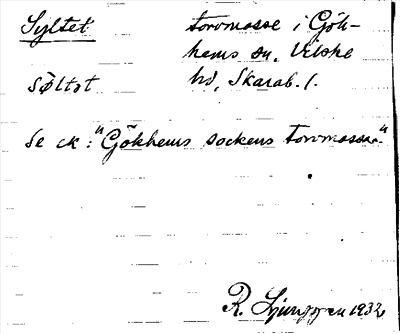 Syltet torvmosse i Gök-
hems sn, Vilske
søltət hd, Skarab. l.
Se ck: "Gökhems sockens torvmossar."
R. Ljunggren 1932